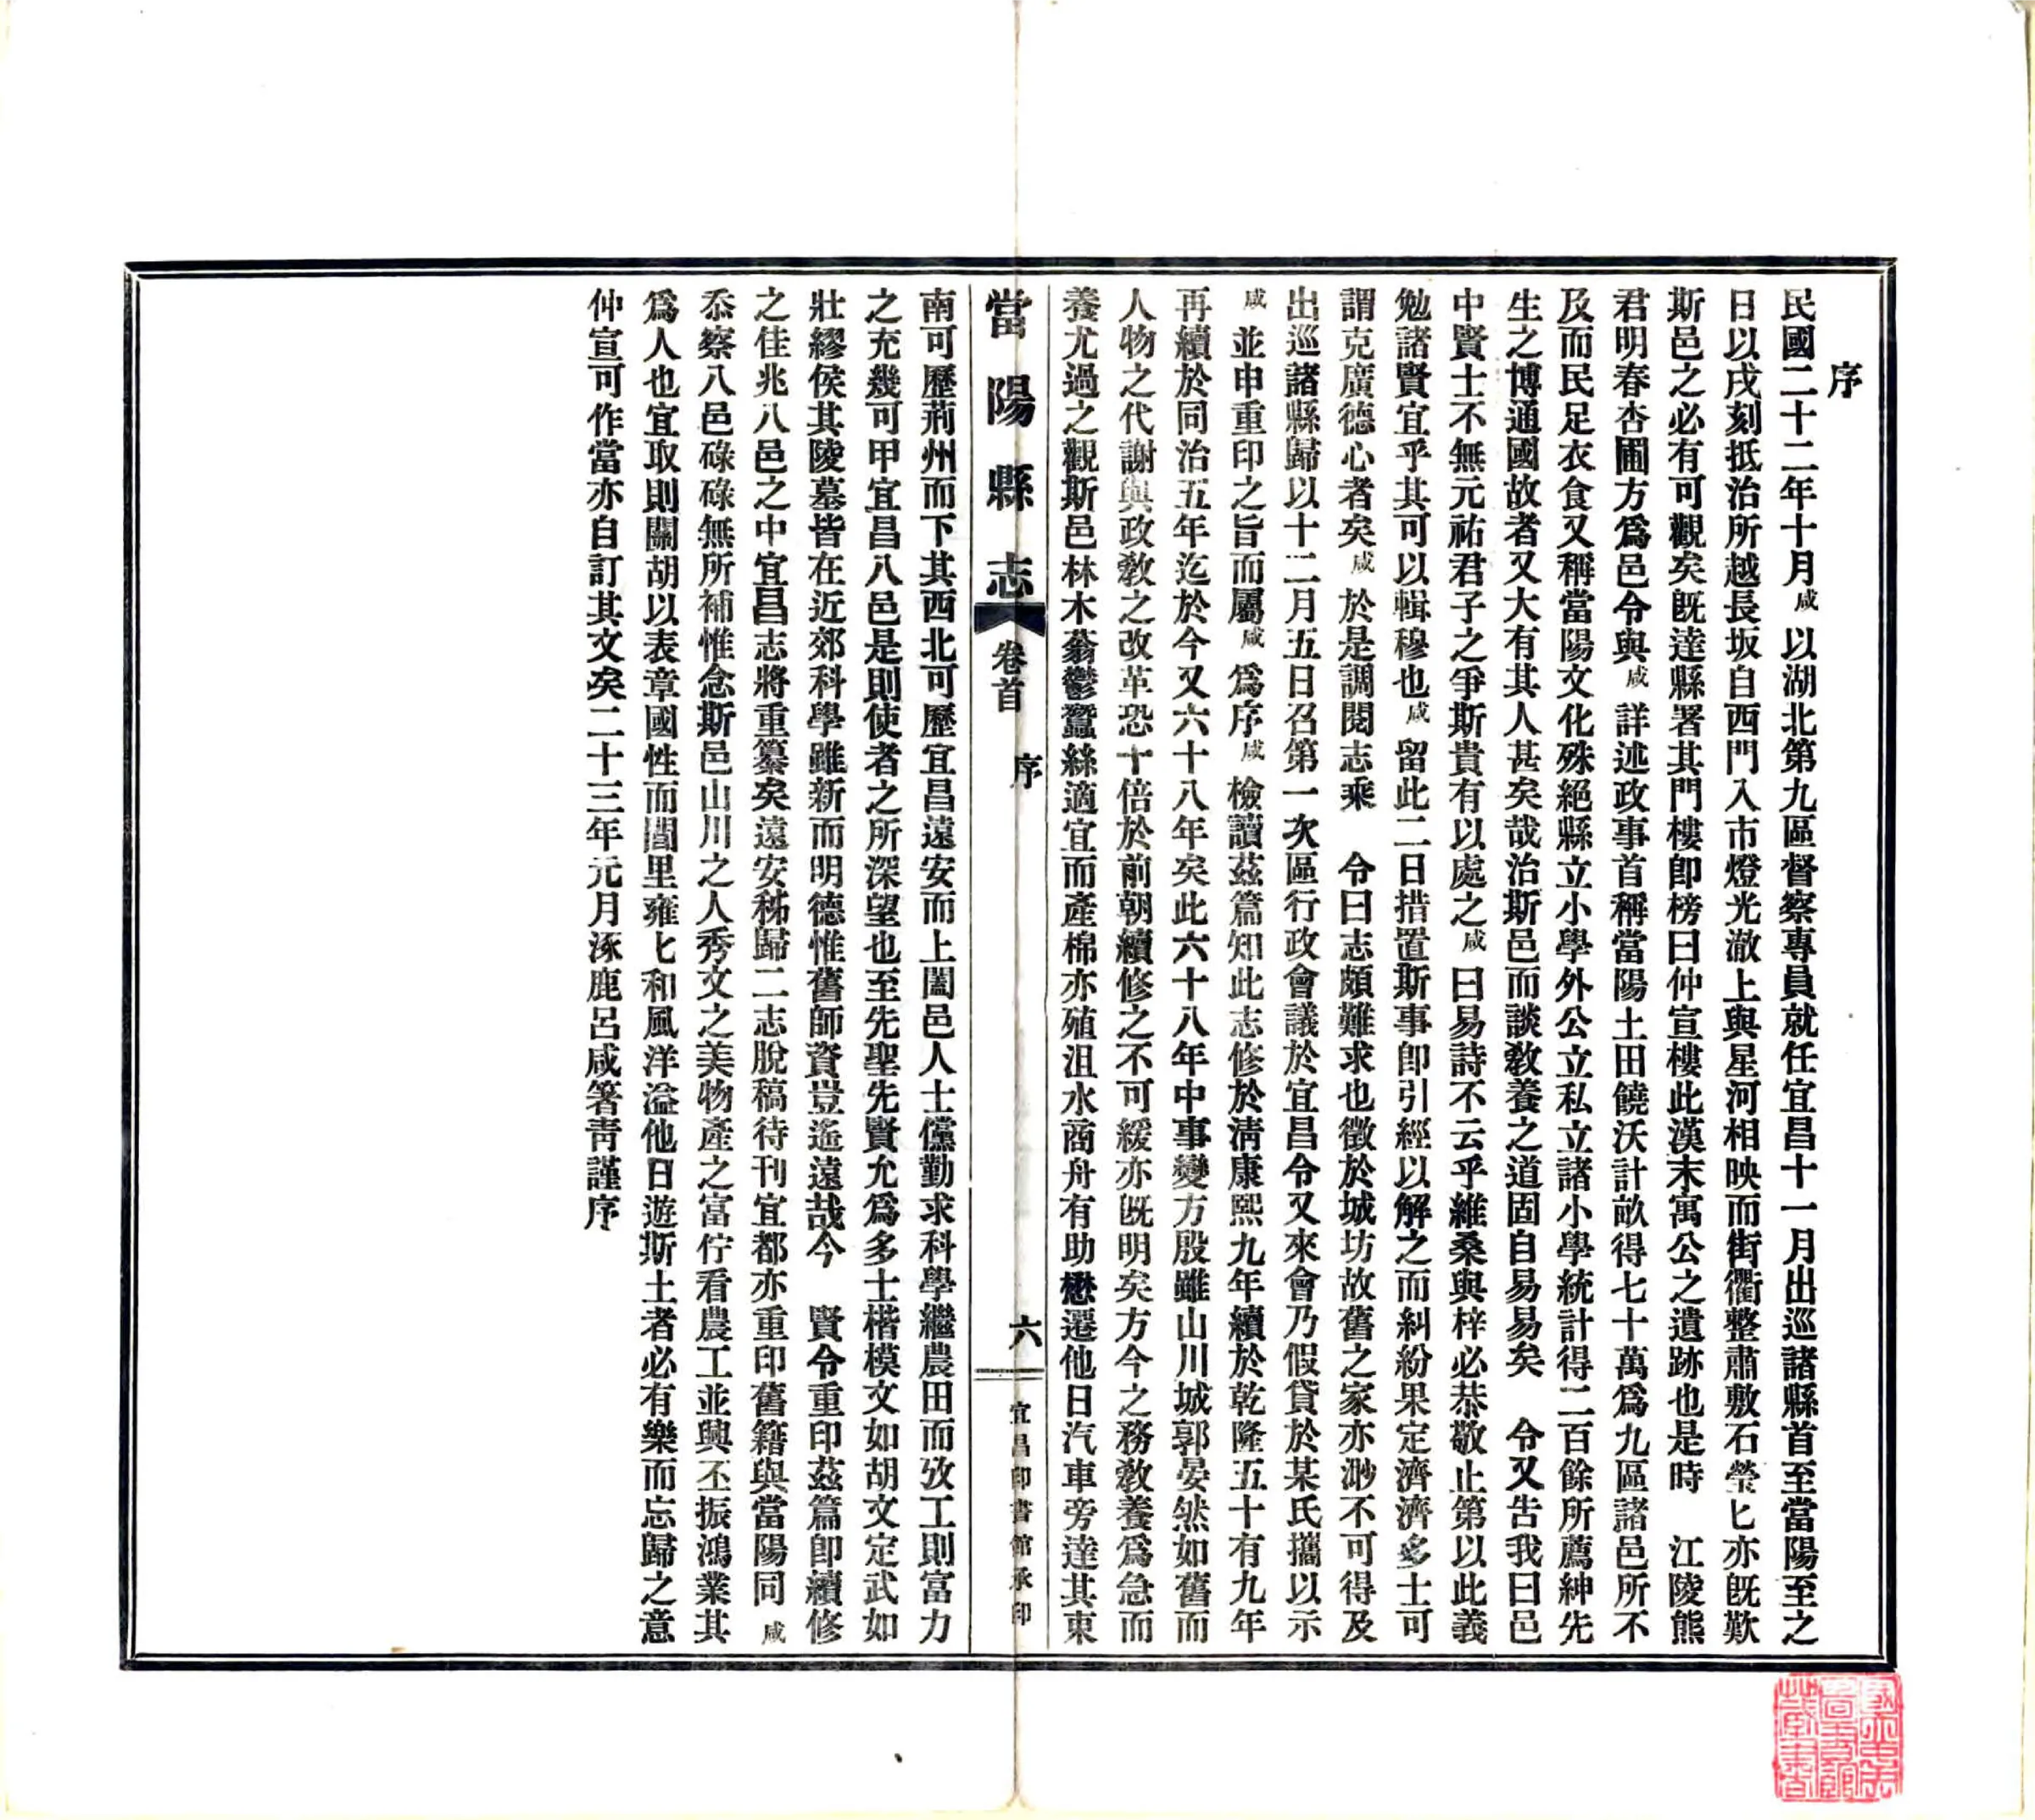 序
民國二十二年十月咸以湖北第九區督察專員就任宜昌十一月出巡諸縣首至當陽至之
日以戌刻抵治所越長坂自西門入市燈光澈上與星河相映而街衢整肅敷石瑩匕亦既歎
斯邑之必有可觀矣既達縣署其門樓卽榜曰仲宣樓此漢末寓公之遺跡也是時　江陵熊
君明春杏圃方爲邑令與咸詳述政事首稱當陽土田饒沃計畝得七十萬爲九區諸邑所不
及而民足衣食又稱當陽文化殊絕縣立小學外公立私立諸小學統計得二百餘所薦紳先
生之博通國故者又大有其人甚矣哉治斯邑而談教養之道固自易易矣　令又告我曰邑
中賢士不無元祐君子之爭斯貴有以處之咸曰易詩不云乎維桑與梓必恭敬止第以此義
勉諸賢宜乎其可以輯穆也咸留此二日措置斯事卽引經以解之而糾紛果定濟濟多士可
謂克廣德心者矣咸於是調閱志乘　令曰志頗難求也徵於城坊故舊之家亦渺不可得及
出巡諸縣歸以十二月五日召第一次區行政會議於宜昌令又來會乃假貸於某氏攜以示
咸並申重印之旨而屬咸爲序咸檢讀茲篇知此志修於淸康熙九年續於乾隆五十有九年
再續於同治五年迄於今又六十八年矣此六十八年中事變方殷雖山川城郭晏然如舊而
人物之代謝與政教之改革恐十倍於前朝續修之不可緩亦既明矣方今之務教養爲急而
養尤過之觀斯邑林木蓊鬱蠶絲適宜而產棉亦殖沮水商舟有助懋遷他日汽車旁達其東
當陽縣志　卷首　序　六　宜昌印書館承印
南可歷荊州而下其西北可歷宜昌遠安而上闔邑人士儻勤求科學繼農田而攷工則富力
之充幾可甲宜昌八邑是則使者之所深望也至先聖先賢允爲多士楷模文如胡文定武如
壯繆侯其陵墓皆在近郊科學雖新而明德惟舊師資豈遙遠哉今　賢令重印茲篇卽續修
之佳兆八邑之中宜昌志將重纂矣遠安秭歸二志脫稿待刊宜都亦重印舊籍與當陽同咸
忝察八邑碌碌無所補惟念斯邑山川之人秀文之美物產之富佇看農工並興丕振鴻業其
爲人也宜取則關胡以表章國性而閭里雍匕和風洋溢他日遊斯土者必有樂而忘歸之意
仲宣可作當亦自訂其文矣二十三年元月涿鹿呂咸箸靑謹序